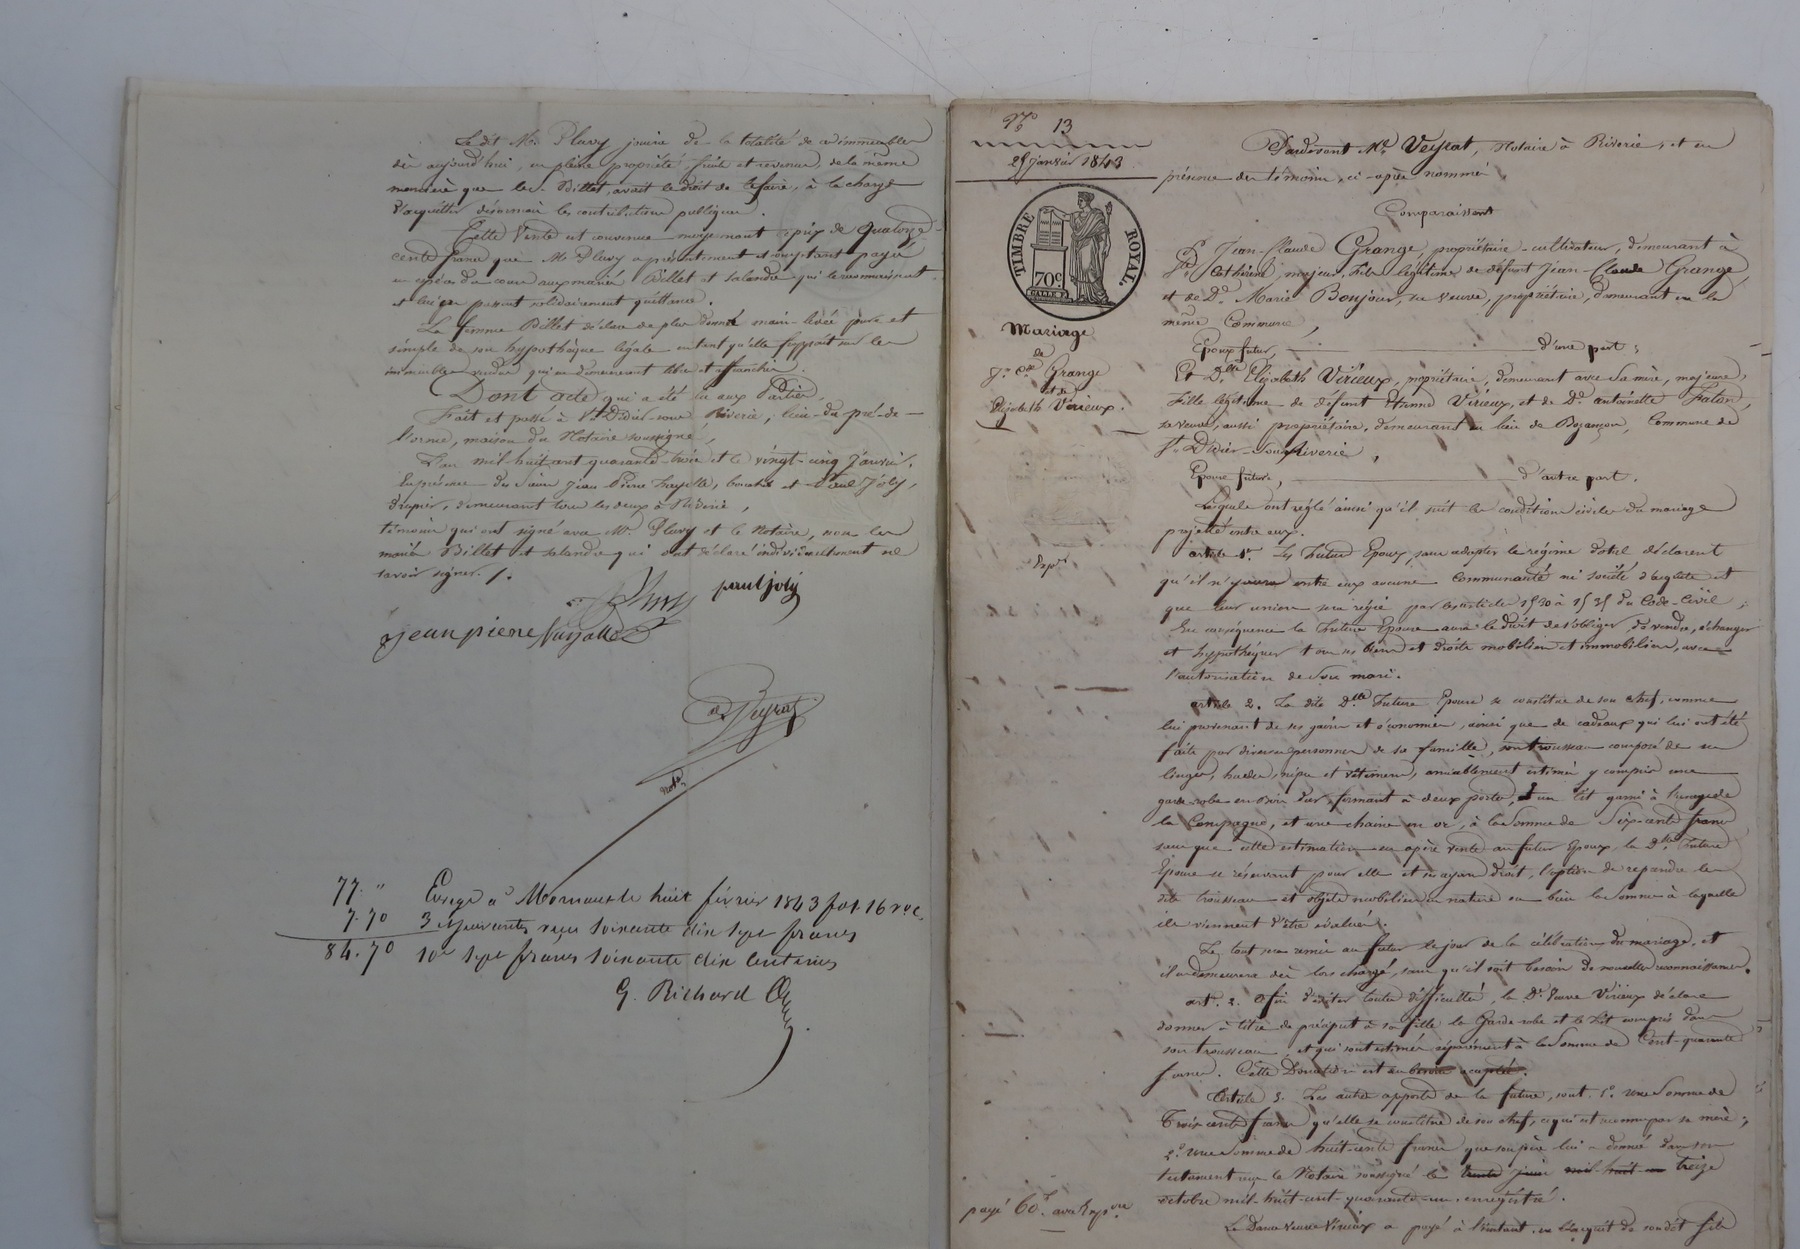 Le dit Mr. Pluvy jouira de la totalité de ces immeubles
dès aujourd'hui, en pleine propriété, fruits et revenus, de la même
manière que les Billet avait le droit de le faire, à la charge
d'acquitter désormais les contributions publiques.
Cette Vente est convenue moyennant le prix de quatorze
cents francs que Mr. Pluvy a présentement et comptant payé
en espèces du cours aux mariés Billet et Salandre qui le reconnaissent
et lui en passent solidairement quittance.
La femme Billet déclare de plus donner main-levée pure et
simple de son hypothèque légale en tant qu'elle frappait sur les
immeubles vendus qui en demeureront libres et affranchis.
Dont acte qui a été lu aux Parties,
Fait et passé à St. Didier-sous-Riverie, lieu du pré-de-
l'orme, maison du Notaire soussigné,
L'an mil-huit-cent-quarante-trois et le vingt-cinq Janvier,
En présence des Sieurs Jean Pierre, boucher et Paul Joly,
drapier, demeurant tous les deux à Riverie,
témoins qui ont signé avec Mr. Pluvy et le Notaire, non les
mariés Billet et Salandre qui ont déclaré individuellement ne
savoir signer. /.
Pluvy paul joly
jean piere
Veyrat
Notre
77. " à Mornant le huit février 1843 fol. 16 Vo c.
7.70 3 reçu soixante dix sept francs
84.70 10e sept francs soixante dix centimes
G. Richard
No 13
25 janvier 1843
TIMBRE ROYAL.
70c
Mariage
de
Jn. Cde Grange
et de
Elizabeth Virieux.
Expn
payé 60f. avec Expon
Pardevant Me. Veyrat, Notaire à Riverie, et en
présence des témoins, ci-après nommés
Comparaissent
Sr. Jean-Claude Grange, propriétaire-cultivateur, demeurant à
Ste. Cathérine, majeur, Fils légitime de défunt Jean-Claude Grange,
et de De. Marie Bonjour, sa veuve, propriétaire, demeurant en la
même Commune,
Epoux futur, d'une part;
Et Dlle. Elizabeth Virieux, propriétaire, demeurant avec sa mère, majeure,
Fille légitime de défunt Etienne Virieux, et de De. antoinette Faton,
sa veuve, aussi propriétaire, demeurant au lieu de Bozançon, Commune de
St. Didier-sous-Riverie,
Epouse future, d'autre part.
Lesquels ont réglé ainsi qu'il suit les conditions civiles du mariage
projetté entre eux.
article 1er. Les Futurs Epoux, sans adopter le régime dotal déclarent
qu'il n'y aura entre eux aucune Communauté ni société d'acquêts et
que leur union sera régie par les articles 1530 à 1535 du Code-Civil;
En conséquence la Future Epouse aura le droit de s'obliger, de vendre, échanger
et hypothéquer tous ses biens et droits mobiliers et immobiliers, avec
l'autorisation de son mari.
article 2. La dite Dlle. Future Epouse se constitue de son chef, comme
lui provenant de ses gains et économies, ainsi que de cadeaux qui lui ont été
faits par diverses personnes de sa famille, son trousseau composé de ses
linges, hardes, nipes et vêtements, amiablement estimés, y compris une
garde-robe en bois dur, fermant à deux portes, et un lit garni à l'usage de
la Campagne, et une chaine en or, à la Somme de Six-cents francs
sans que cette estimation en opère vente au futur Epoux, la Dlle. Future
Epouse se réservant pour elle et ses ayans droit, l'option de reprendre les
dits trousseau et objets mobiliers en nature ou bien la Somme à laquelle
ils viennent d'être évalués.
Le tout sera remis au futur le jour de la célébration du mariage, et
il en demeurera dès lors chargé, sans qu'il soit besoin de nouvelle reconnaissance.
art. 2. afin d'éviter toutes difficultés, la De. Veuve Virieux déclare
donner à titre de préciput à sa fille la Garde-robe et le Lit compris dans
son trousseau, et qui sont estimés séparément à la Somme de Cent-quarante
francs. Cette Donation est acceptée.
Article 3. Les autres apports de la future, sont: 1º. Une Somme de
Trois-cents francs qu'elle se constitue de son chef, ce qui est reconnu par sa mère;
2º. Une Somme de huit-cents francs que son père lui a donnée dans son
testament reçu le Notaire soussigné le trente juin mil-huit-cent treize
octobre mil-huit-cent-quarante-un, enregistré.
La Dame Veuve Virieux a payé à l'instant, en l'acquit de son dit fils